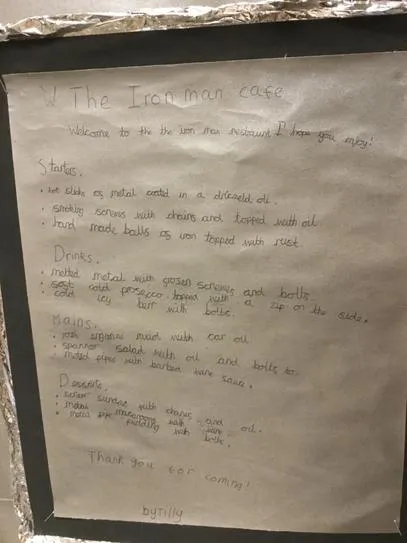 The Iron man cafe
Welcome to the the iron man restraunt I hope you enjoy!
Starters.
• hot slicks of metal coated in a drizzeld oil.
• smoking screws with chains and topped with oil
• hand made balls of iron topped with rust.
Drinks.
• melted metal with frozen screws and bolts
• soft cold prosecco topped with a zip on the side.
• cold icy beer with bolts.
Mains.
• with car oil
• spanner salad with oil and bolts to
• melted pipes with barbed wire sauce.
Desserts.
• screw sundae with chains and oil.
• metal macaroons with
• metal pipe pudding with bolts.
Thank you for coming!
by Tilly